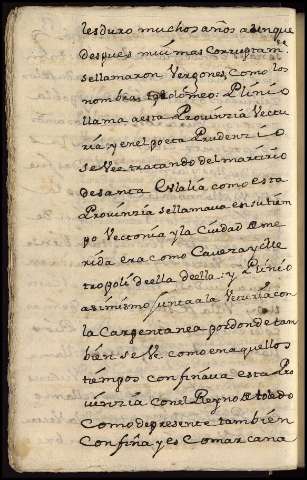 les duro muchos años aunque
despues mui mas corruptam.te
se llamaron Vergones, como los
nombra Ptolomeo: Plinio
llama a esta Provinzia Vectu
ria, y en el poeta Prudenzio
se Vee tratando del martirio
de santa Eulalia como esta
Provinzia se llamava en su tiem
po Vectonia y la Ciudad de me
rida era como Caveza y Me
tropoli de ella de ella: y Plinio
asimismo junta a la Veturia con
la Carpentanea por donde tam
bien se Ve como en aquellos
tiempos confinava esta Pro
vinzia con el Reyno de toledo
Como de presente tambien
Confina y es Comarcana